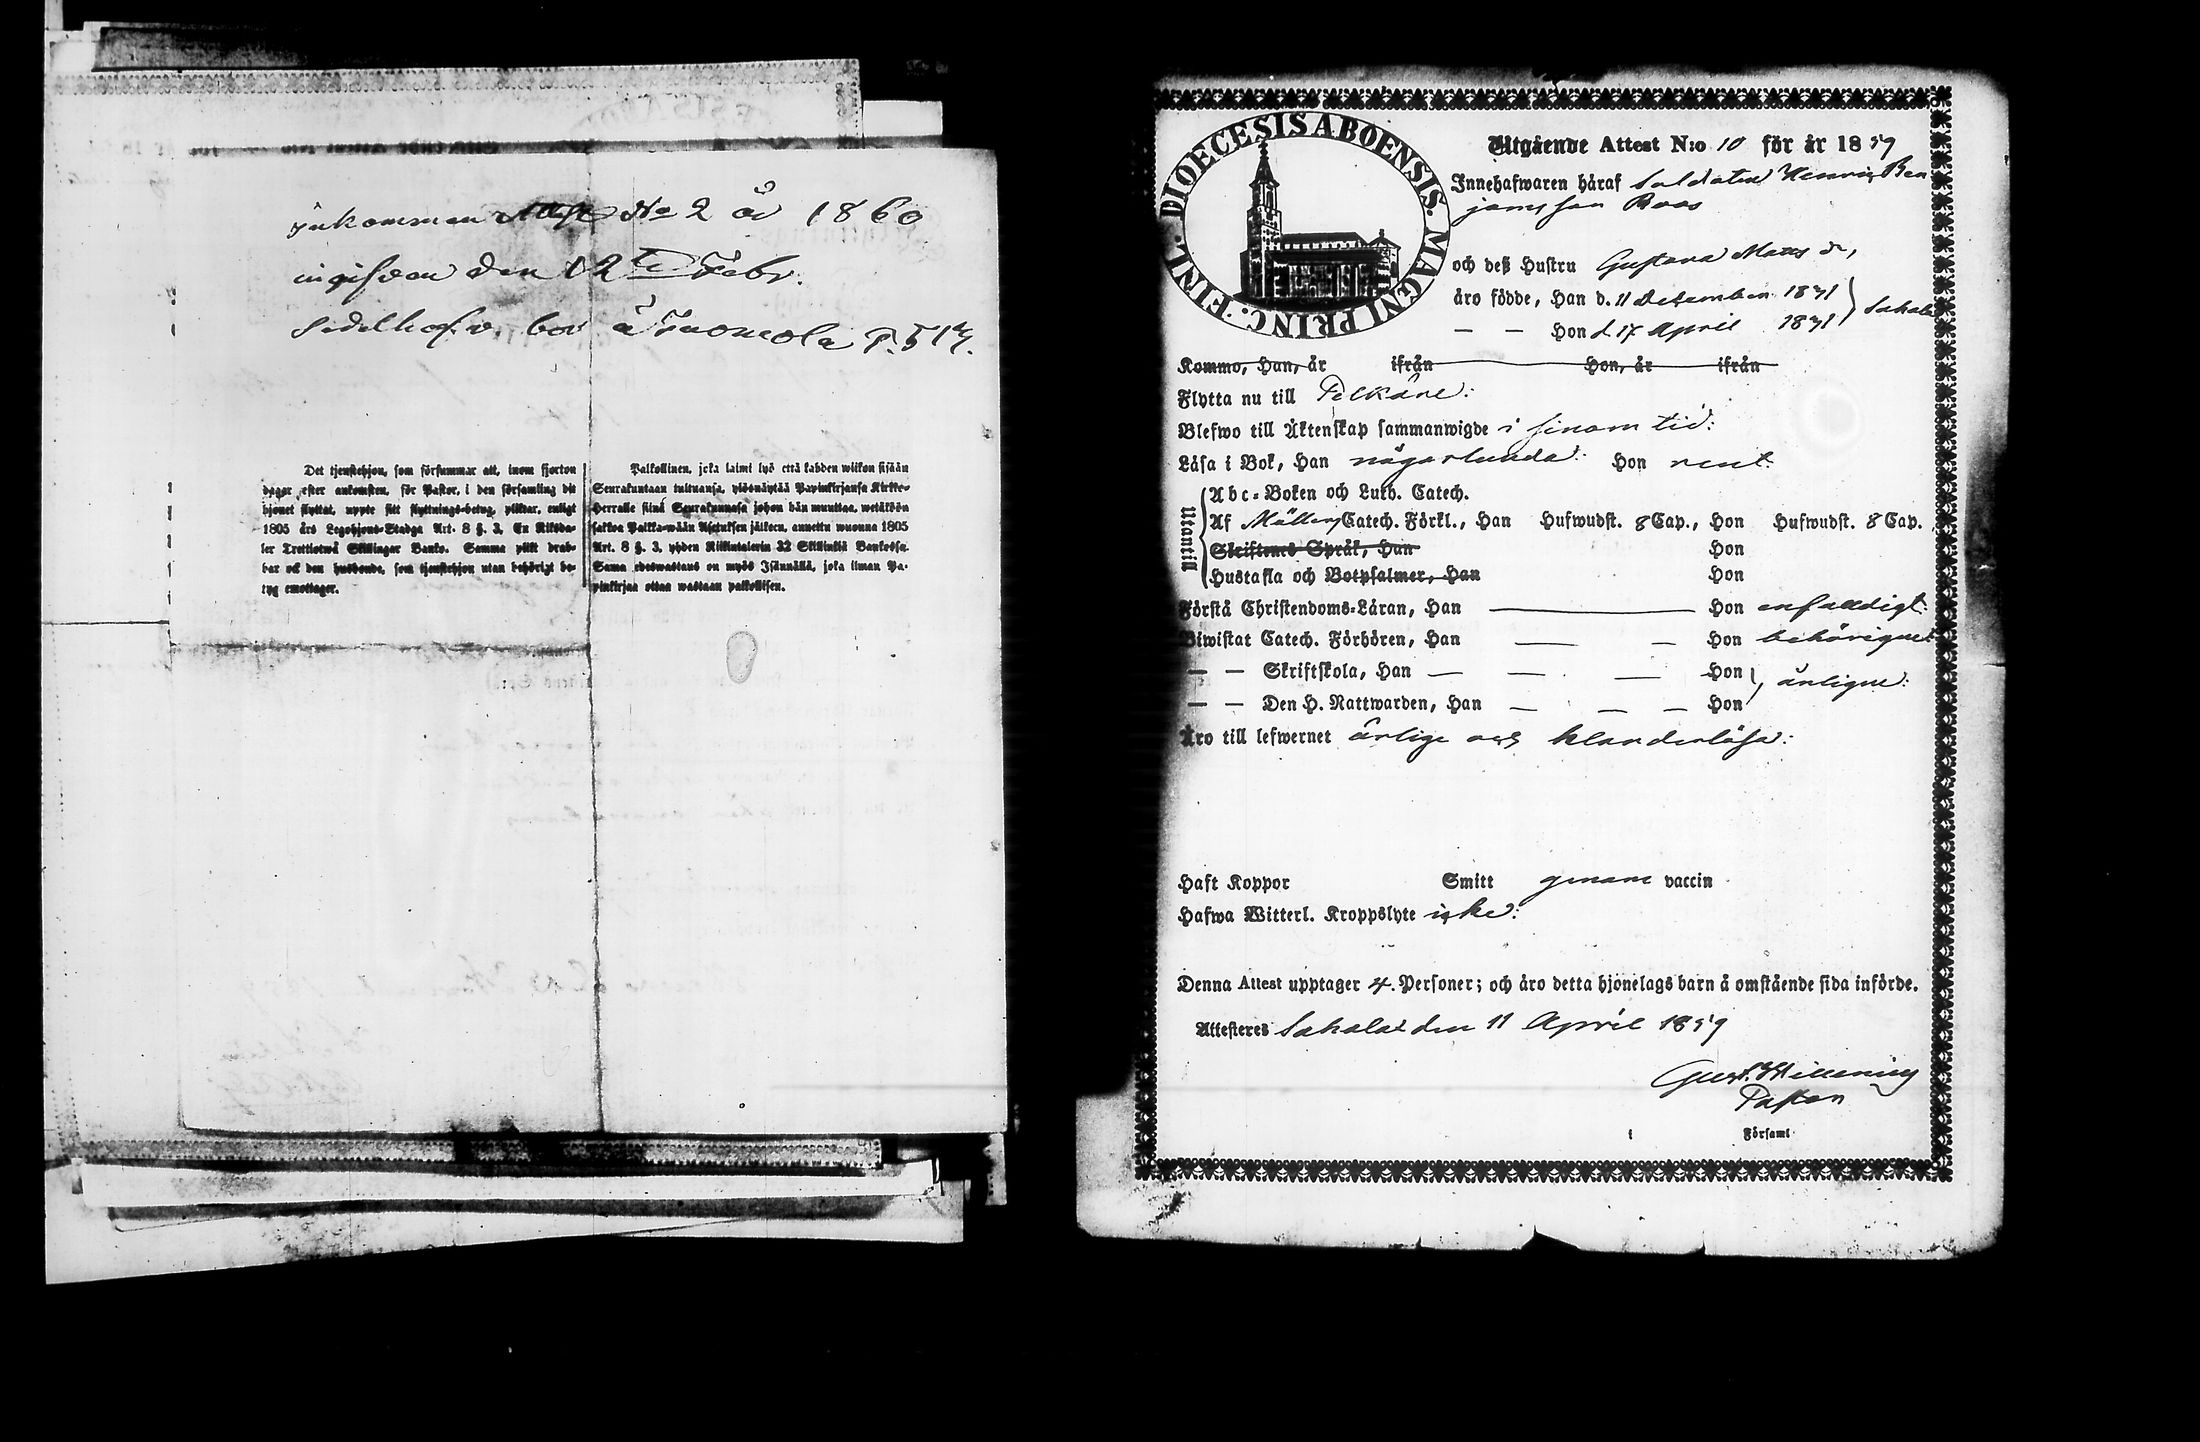 inkommen Attest No 2 år 1860
ingifven den 12te Febr.
sedelhafv. bor å Tuomola P. 517.
Det tjenstehjon, som försummar att, inom fjorton
dagar efter ankomsten, för Pastor, i den församling dit
hjonet flyttat, uppte sitt flyttnings-betyg, pliktar, enligt
1805 års Legohjons-Stadga Art. 8 §. 3, En Riksda-
ler Trettiotwå Skillingar Banko. Samma plikt drab-
bar ock den husbonde, som tjenstehjon utan behörigt be-
tyg emottager.
Palkollinen, joka laimi lyö että kahden wiikon sisään
Seurakuntaan tultuansa, ylösnäyttää Papinkirjansa Kirkko-
Herralle siinä Seurakunnasa johon hän muuttaa, wetäköön
sakkoa Palkka-wään Asetuksen jälkeen, annettu wuonna 1805
Art. 8 §. 3, yhden Riikintalerin 32 Skillinkiä Bankossa.
Sama edeswastaus on myös Isännällä, joka ilman Pa-
pinkirjaa ottaa wastaan palkollisen.
DIOECESIS ABOENSIS. MAGNI PRINC. FINL.
Utgående Attest N:o 10 för år 1859
Innehafwaren häraf Soldaten Henrik Ben
jamsson Roos
och deß Hustru Gustava Matts dr,
äro födde, Han d. 11 December 1831
Sahala
— — Hon d. 17 April 1831
Kommo, Han, år ifrån Hon, år ifrån
Flytta nu till Pelkäne:
Blefwo till Äktenskap sammanwigde i sinom tid:
Läsa i Bok, Han någorlunda: Hon rent:
Utantill
Abc-Boken och Luth. Catech.
Af Möllers Catech. Förkl., Han Hufwudst. 8 Cap., Hon Hufwudst. 8 Cap.
Skriftenes Språk, Han Hon
Hustafla och Botpsalmer, Han Hon
Förstå Christendoms-Läran, Han — Hon enfaldigt:
Biwistat Catech. Förhören, Han — — Hon behörigen:
— — Skriftskola, Han — — — Hon
årligen:
— — Den H. Nattwarden, Han — — — Hon
Äro till lefwernet ärlige och klanderlösa:
Haft Koppor Smitt genom vaccin
Hafwa Witterl. Kroppslyte icke:
Denna Attest upptager 4. Personer; och äro detta hjonelags barn å omstående sida införde.
Attesteres Sahalax den 11 April 1859
Gust. Hillening
Pastor
i Församl